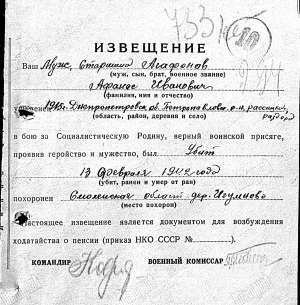 733
ИЗВЕЩЕНИЕ
Ваш Муж, Старшина Агафонов
(муж, сын, брат, военное звание)
Афанас Иванович
(фамилия, имя и отчество)
1915 Днепропетровск. об. Петропавлов. р-н
(область, район, деревня и село)
в бою за Социалистическую Родину, верный воинской присяге,
проявив геройство и мужество, был Убит
13 февраля 1942 года
(убит, ранен и умер от ран)
похоронен Смоленская область дер.
(место похорон)
Настоящее извещение является документом для возбуждения
ходатайства о пенсии (приказ НКО СССР №
КОМАНДИР ВОЕННЫЙ КОМИССАР